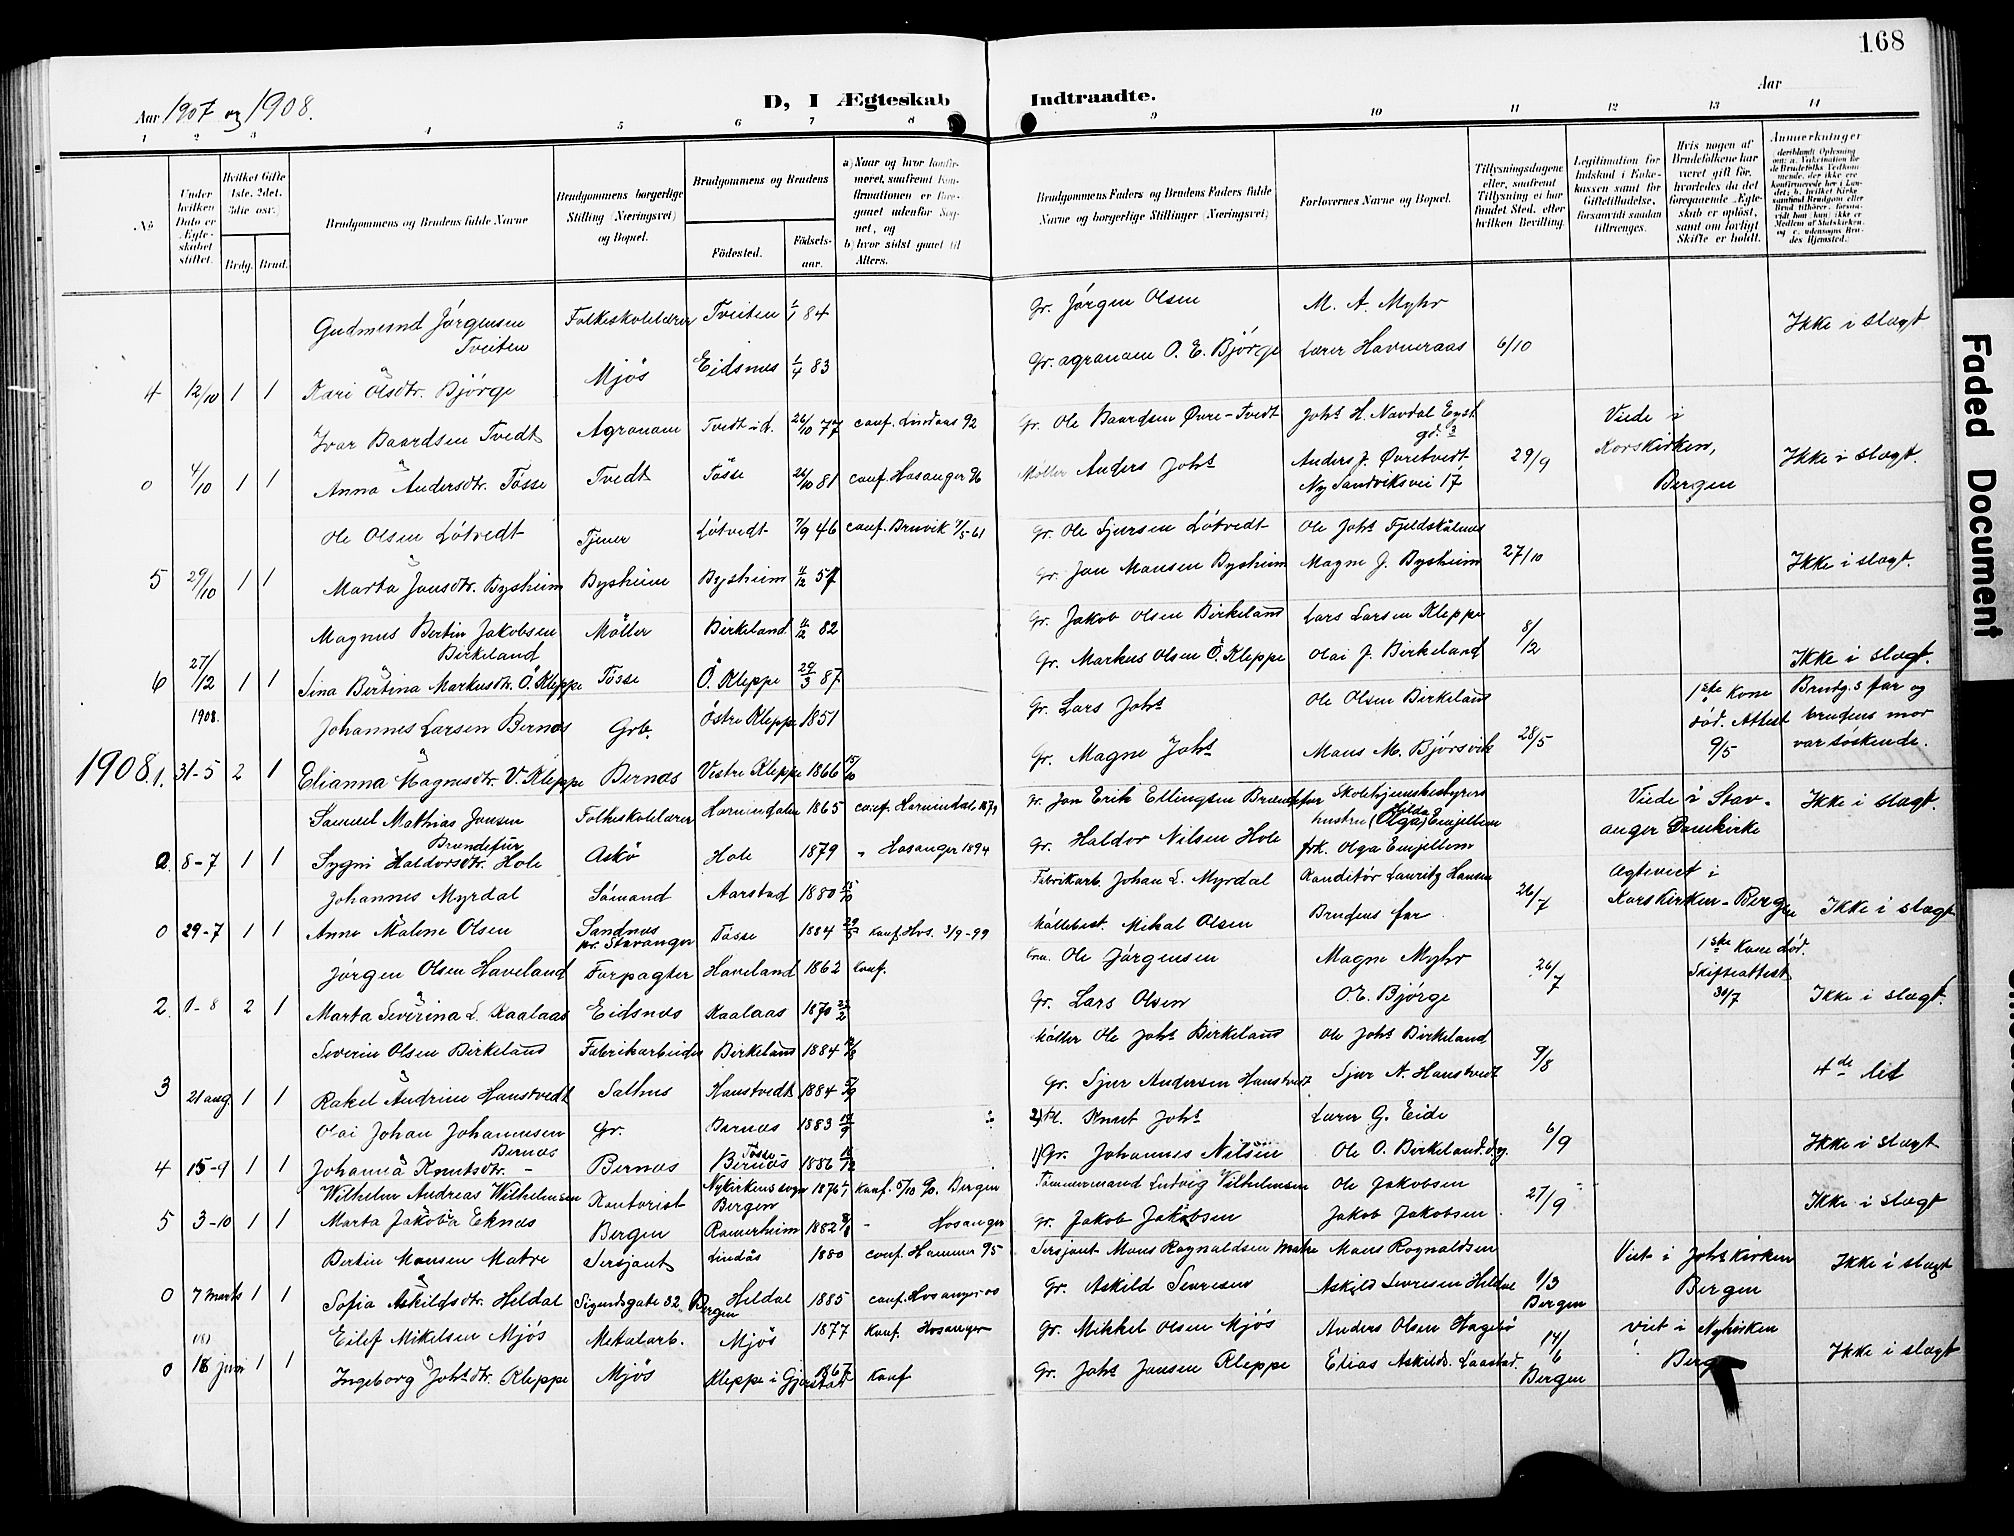 168
Aar 1907 og 1908.
D, I Ægteskab Indtraadte.
Aar
1 2 3 4 5 6 7 8 9 10 11 12 13 14
No.
Under hvilken Dato er Ægteskabet stiftet.
Hvilket Gifte 1ste, 2det, 3die osv.
Brdg. Brud.
Brudgommens og Brudens fulde Navne
Brudgommens borgerlige Stilling (Næringsvei) og Bopæl.
Brudgommens og Brudens
Födested. Födselsaar.
a) Naar og hvor konfirmeret, saafremt Konfirmationen er foregaaet udenfor Sognet, og
b) hvor sidst gaaet til Alters.
Brudgommens Faders og Brudens Faders fulde Navne og borgerlige Stillinger (Næringsvei)
Forlovernes Navne og Bopæl.
Tillysningsdagene eller, saafremt Tillysning ei har fundet Sted, efter hvilken Bevilling.
Legitimation for Indskud i Enkekassen samt for Giftetilladelse, forsaavidt saadan tiltrænges.
Hvis nogen af Brudefolkene har været gift før, hvorledes da det foregaaende Ægteskab er oplöst, samt om lovligt Skifte er holdt.
Anmerkninger
Gudmund Jörgensen Tveiten Folkeskolelærer Tveiten 1/1 84 Gr. Jörgen Olsen M. A. Myhr
4 12/10 1 1 Kari Olsdtr. Björge Mjös Eidsnes 1/4 83 Gr. agronom O. E. Björge Lærer Havneraas 6/10 Ikke i slægt
Ivar Baardsen Tvedt Agronom Tvedt i d. 26/10 77 conf. Lindaas 92 Gr. Ole Baardsen Øvre-Tvedt Johs H. Navdal
0 4/10 1 1 Anna Andersdtr. Tösse Tvedt Tösse 26/10 81 conf. Hosanger 96 Möller Anders Johs Anders J. Øvretvedt Ny Sandviksvei 17 29/9 Viede i Korskirken, Bergen Ikke i slægt.
Ole Olsen Lötvedt Tjener Lötvedt 7/9 46 conf. Bruvik 7/5-61 Gr. Ole Sjursen Lötvedt Ole Johs Fjeldskålnes
5 29/10 1 1 Marta Jonsdtr. Bysheim Bysheim Bysheim 11/12 57 Gr. Jon Monsen Bysheim Magne J. Bysheim 27/10 Ikke i slægt.
Magnus Bertin Jakobsen Birkeland Möller Birkeland 11/12 82 Gr. Jakob Olsen Birkeland Lars Larsen Kleppe
6 27/12 1 1 Sina Bertina Markusdtr. Ö. Kleppe Tösse Ö. Kleppe 29/3 87 Gr. Markus Olsen Ö. Kleppe Olai J. Birkeland 8/12 Ikke i slægt.
1908. Johannes Larsen Bernæs Grb. Östre Kleppe 1851 Gr. Lars Johs Ole Olsen Birkeland
1908. 1. 31-5 2 1 Elianna Magnesdtr. V. Kleppe Bernæs Vestre Kleppe 1866 15/10 Gr. Magne Johs Mons M. Björsvik 28/5 1ste Kone död. Attest 9/5 Brudg.s far og brudens mor var söskende.
Samuel Mathias Jonsen Brændefur Folkeskolelærer Hornindalen 1865 conf. Hornindal 1879 Gr. Jon Erik Ellingsen Skolehjemsbestyrers hustru (Olga) Emjellem
0 8-7 1 1 Sygni Haldorsdtr. Hole Askö Hole 1879 " Hosanger 1894 Gr. Haldor Nilsen Hole frk. Olga Emjellem Viede i Stavanger Domkirke Ikke i slægt.
Johannes Myrdal Sömand Aarstad 1880 15/10 Fabrikarb. Johan L. Myrdal Konditör Lauritz Hansen
0 29-7 1 1 Anna Malene Olsen Sandnes pr. Stavanger Tösse 1884 29/5 Konf. Hos. 3/9-99 Möllebest. Mikal Olsen Brudens far. 26/7 Ægteviet i Korskirken-Bergen Ikke i slægt
Jörgen Olsen Haveland Forpagter Haveland 1862 Konf. Ole Jörgensen Magne Myhr
2. 1-8 2 1 Marta Severina L. Kaalaas Eidsnes Kaalaas 1870 22/2 Gr. Lars Olsen O. E. Björge 26/7 1ste Kone död. Skifteattest 30/7 Ikke i slægt.
Severin Olsen Birkeland Fabrikarbeider Birkeland 1884 Möller Ole Johs Birkeland Ole Johs Birkeland
3 21 aug 1 1 Rakel Andrine Hanstvedt Salhus Hanstvedt 1884 Gr. Sjur Andersen Hanstvedt Sjur N. Hanstvedt 9/8 4de led
Olai Johan Johannesen Bernæs Gr. Bernæs 1883 2) Knut Johs Lærer G. Eide
4 15-9 1 1 Johanna Knutsdtr. – Bernæs Tösse Bernæs 1886 1) Gr. Johannes Nilsen Ole O. Birkeland 6/9 Ikke i slægt
Wilhelm Andreas Wilhelmsen Kontorist Nykirkens sogn Bergen 1876 Konf. 5/10 90. Bergen Tömmermand Ludvig Vilhelmsen Ole Jakobsen
5 3-10 1 1 Marta Jakobia Eknæs Bergen Romerheim 1882 – Hosanger Gr. Jakob Jakobsen Jakob Jakobsen 27/9 Ikke i slægt
Bertin Monsen Matre Sersjant Lindås 1880 conf. Hammer 95 Sersjant Mons Rognaldsen Matre Mons Rognaldsen
0 7 marts 1 1 Sofia Askildsdtr. Heldal Sigurdsgate 32, Bergen Heldal 1885 conf. Hosanger 00 Gr. Askild Severesen Askild Severesen Heldal 1/3 Bergen Viet i Johskirken Bergen Ikke i slægt
Eilef Mikelsen Mjös Mekalarb. Mjös 1877 Konf. Hosanger Gr. Mikkel Olsen Mjös Anders Olsen
0 18 juni 1 1 Ingeborg Johsdtr. Kleppe Mjös Kleppe i Gjerstad 1867 Konf Gr. Johs Jonsen Kleppe Elias Askilds. 14/6 Bergen Viet i Nykirken Ikke i slægt
Faded Document